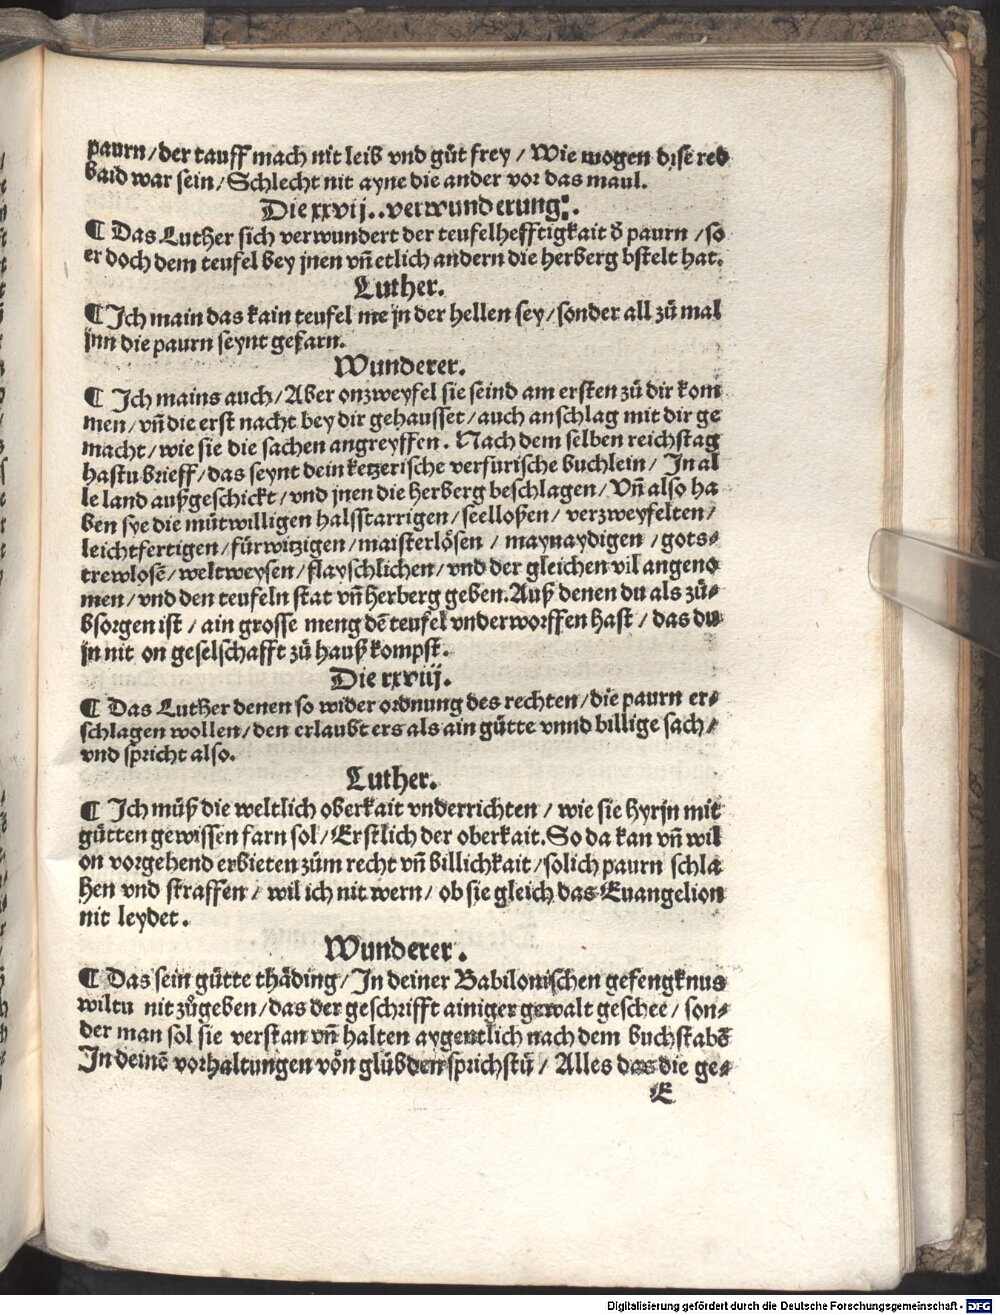 paurn / der tauff mach nit leib vnd gůt frey / Wie mogen dise red
baid war sein / Schlecht nit ayne die ander vor das maul.
Die xxvij. verwunderung.
¶ Das Luther sich verwundert der teufelhefftigkait d̕ paurn / so
er doch dem teufel bey jnen vn̄ etlich andern die herberg bstelt hat.
Luther.
¶ Ich main das kain teufel me jn der hellen sey / sonder all zů mal
jnn die paurn seynt gefarn.
Wunderer.
¶ Ich mains auch / Aber onzweyfel sie seind am ersten zů dir kom
men / vn̄ die erst nacht bey dir gehausset / auch anschlag mit dir ge
macht / wie sie die sachen angreyffen. Nach dem selben reichstag
hastu brieff / das seynt dein ketzerische verfurische buchlein / In al
le land außgeschickt / vnd jnen die herberg beschlagen / Vn̄ also ha
ben sye die můtwilligen halsstarrigen / seelloßen / verzweyfelten /
leichtfertigen / fürwitzigen / maisterlösen / maynaydigen / gots⸗
trewlosē / weltweysen / flayschlichen / vnd der gleichen vil angeno
men / vnd den teufeln stat vn̄ herberg geben. Auß denen du als zů⸗
bsorgen ist / ain grosse meng dē teufel vnderworffen hast / das du
jn nit on geselschafft zů hauß kompst.
Die xxviij.
¶ Das Luther denen so wider ordnung des rechten / die paurn er⸗
schlagen wollen / den erlaubt ers als ain gütte vnnd billige sach /
vnd spricht also.
Luther.
¶ Ich můß die weltlich oberkait vnderrichten / wie sie hyrjn mit
gütten gewissen farn sol / Erstlich der oberkait. So da kan vn̄ wil
on vorgehend erbieten zům recht vn̄ billichkait / solich paurn schla
hen vnd straffen / wil ich nit wern / ob sie gleich das Euangelion
nit leydet.
Wunderer.
¶ Das sein gütte thäding / In deiner Babilonischen gefengknus
wiltu nit zůgeben / das der geschrifft ainiger gewalt geschee / son⸗
der man sol sie verstan vn̄ halten aygentlich nach dem buchstabē
In deinē vorhaltungen von glübden sprichstu / Alles das die ge⸗
E
Digitalisierung gefördert durch die Deutsche Forschungsgemeinschaft - DFG